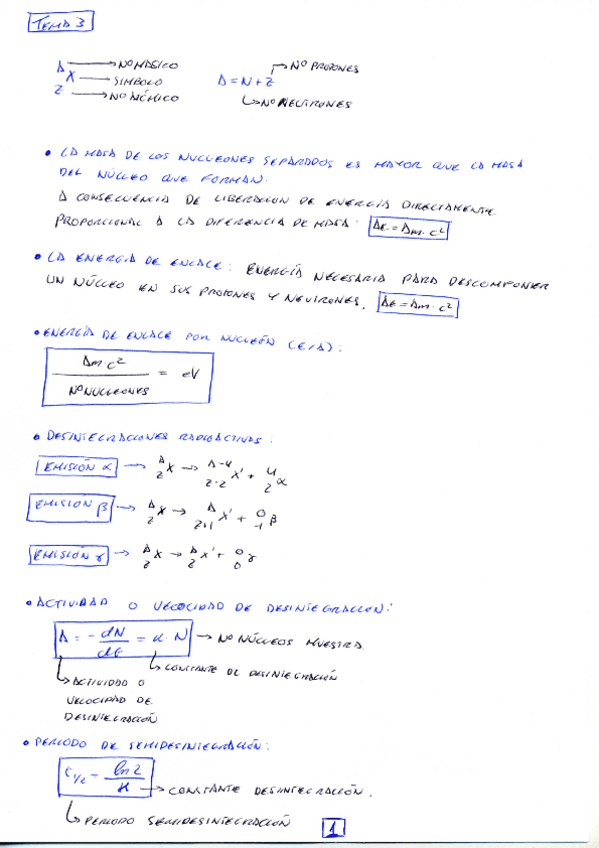 TEMA 3
A → Nº MÁSICO
X → SÍMBOLO
Z → Nº ATÓMICO
A = N + Z
→ Nº PROTONES
→ Nº NEUTRONES
• LA MASA DE LOS NUCLEONES SEPARADOS ES MAYOR QUE LA MASA
DEL NÚCLEO QUE FORMAN.
A CONSECUENCIA DE LIBERACIÓN DE ENERGÍA DIRECTAMENTE
PROPORCIONAL A LA DIFERENCIA DE MASA: ΔE = Δm · c²
• LA ENERGÍA DE ENLACE: ENERGÍA NECESARIA PARA DESCOMPONER
UN NÚCLEO EN SUS PROTONES Y NEUTRONES. ΔE = Δm · c²
• ENERGÍA DE ENLACE POR NUCLEÓN (E/A):
Δm·c² / Nº NUCLEONES = eV
• DESINTEGRACIONES RADIOACTIVAS:
EMISIÓN α → ᴬ_Z X → ᴬ⁻⁴_Z-2 X' + ⁴_2 α
EMISIÓN β → ᴬ_Z X → ᴬ_Z+1 X' + ⁰_-1 β
EMISIÓN γ → ᴬ_Z X → ᴬ_Z X' + ⁰_0 γ
• ACTIVIDAD O VELOCIDAD DE DESINTEGRACIÓN:
A = - dN/dt = k · N → Nº NÚCLEOS MUESTRA
→ CONSTANTE DE DESINTEGRACIÓN
→ ACTIVIDAD O
VELOCIDAD DE
DESINTEGRACIÓN
• PERIODO DE SEMIDESINTEGRACIÓN:
t1/2 = ln 2 / k → CONSTANTE DESINTEGRACIÓN.
→ PERIODO SEMIDESINTEGRACIÓN
1